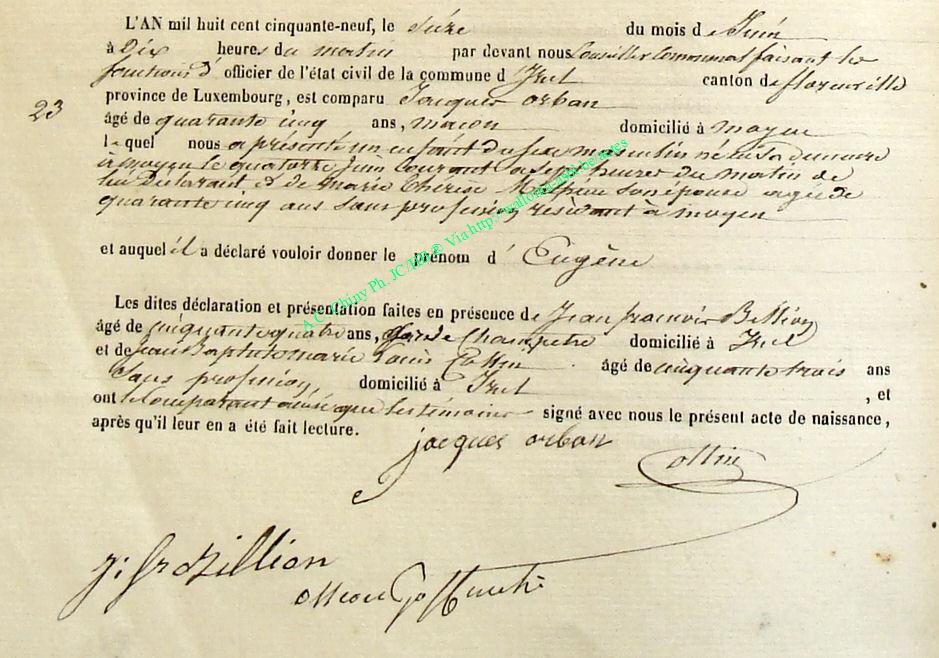 L'AN mil huit cent cinquante-neuf, le seize du mois de Juin
à Dix heures du matin par devant nous Conseiller Communal faisant les
fonctions d' officier de l'état civil de la commune d'Izel canton de florenville
province de Luxembourg, est comparu Jacques orban
23
âgé de quarante cinq ans, maçon domicilié à moyen
lequel nous a présenté un enfant du sexe masculin né en sa demeure
à moyen le quatorze Juin courant a sept heures du matin de
lui Déclarant, et de marie thérèse son épouse agée de
quarante cinq ans sans profession, résidant à moyen
et auquel il a déclaré vouloir donner le prénom d' Eugène
Les dites déclaration et présentation faites en présence de Jean francois
âgé de cinquante quatre ans, Garde Champetre domicilié à Izel
et de Jean Baptiste marie Louis Collin âgé de cinquante trois ans
Sans profession, domicilié à Izel , et
ont le Comparant ainsi que les témoins signé avec nous le présent acte de naissance,
après qu'il leur en a été fait lecture.
jacques orban
Collin
J: fr
A.C. Chiny Ph. JC. © Via http://